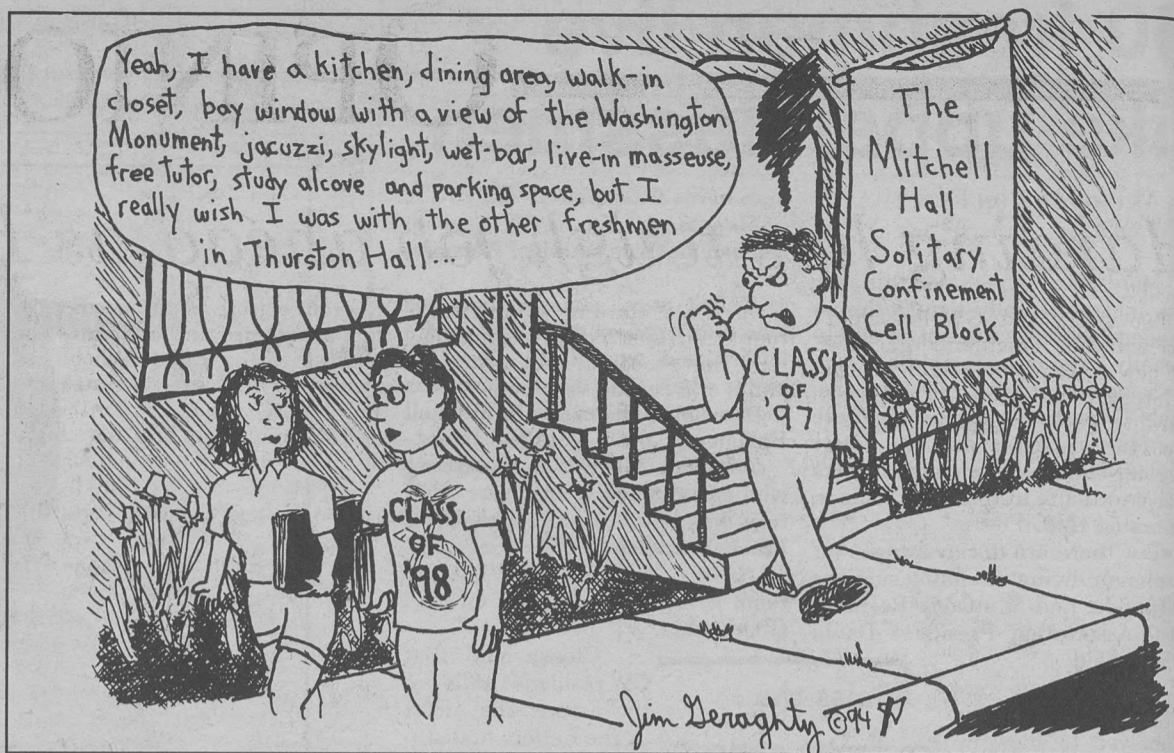 Yeah, I have a kitchen, dining area, walk-in
closet, bay window with a view of the Washington
Monument, jacuzzi, skylight, wet-bar, live-in masseuse,
free tutor, study alcove and parking space, but I
really wish I was with the other freshmen
in Thurston Hall...
The
Mitchell
Hall
Solitary
Confinement
Cell Block
CLASS
OF
'97
CLASS
OF
'98
Jim Geraghty ©94